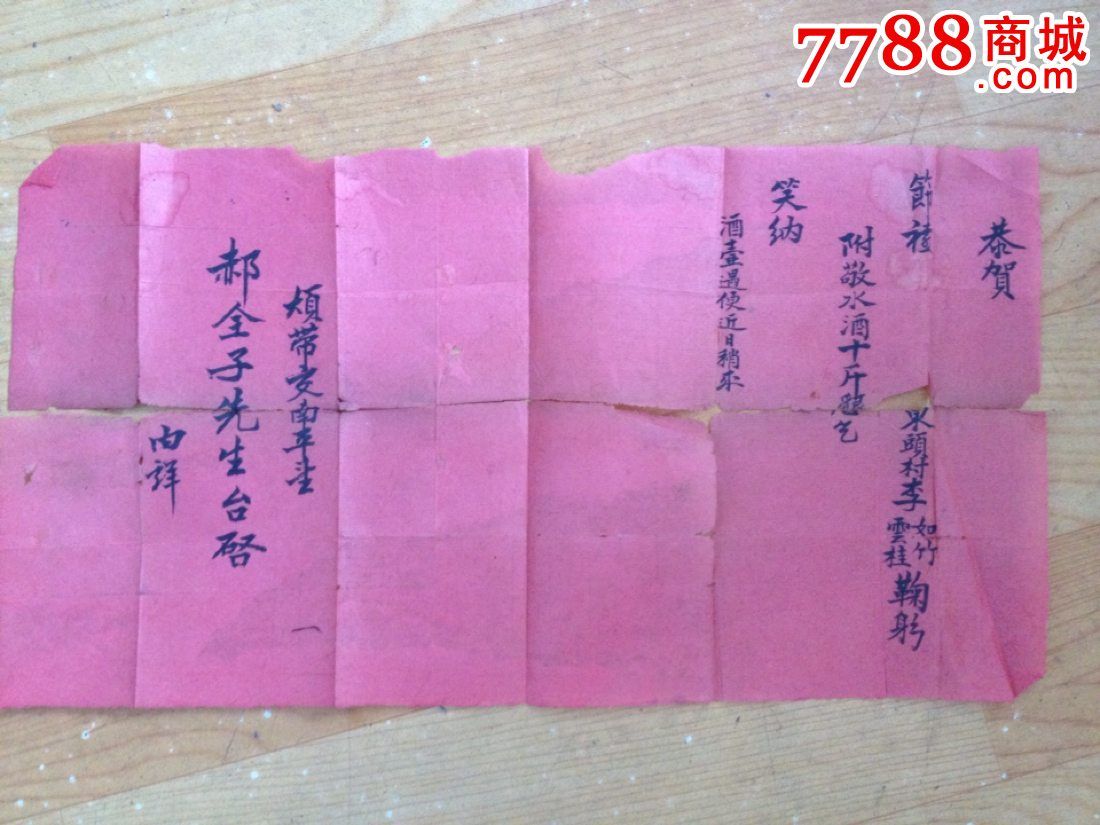 7788商城
.com
恭賀
節禧
泉頭村李如竹雲桂鞠躬
附敬水酒十斤
笑納
酒壺遇便近日稍来
煩带交南平
郝全子先生台啓
内詳